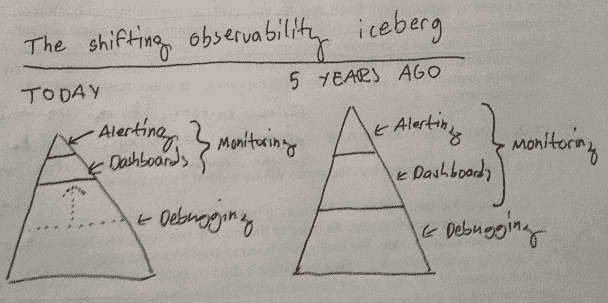 The shifting observability iceberg
TODAY
5 YEARS AGO
Alerting
Dashboards
Monitoring
Debugging
Alerting
Dashboards
Monitoring
Debugging